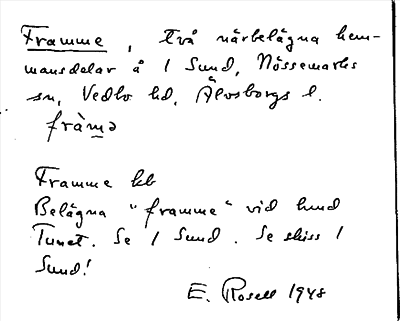 Framme, två närbelägna hem-
mansdelar å 1 Sund, Nössemarks
sn, Vedbo hd, Älvsborgs l.
fràmə
Framme kb
Belägna "framme" vid
Tunet. Se 1 Sund. Se skiss 1
Sund!
E. Rosell 1948